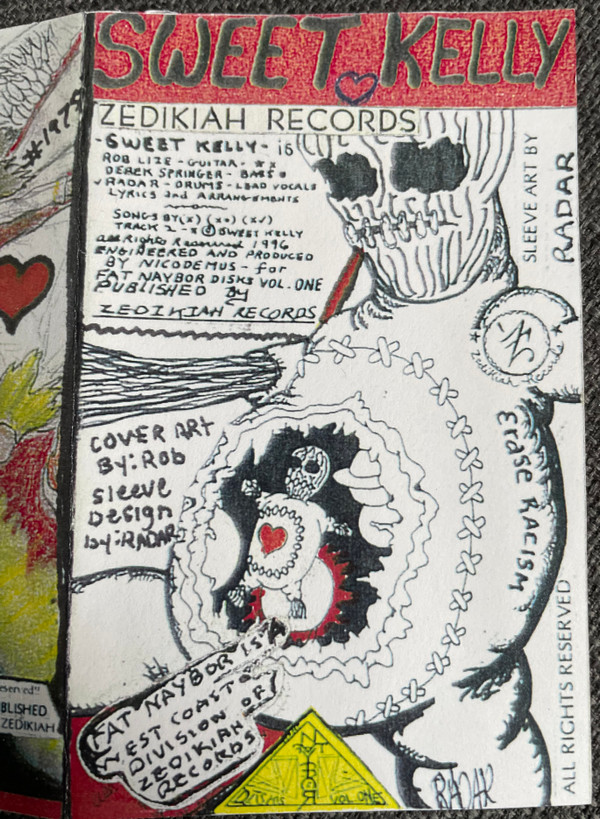 SWEET KELLY
ZEDIKIAH RECORDS
- SWEET KELLY - is
ROB LIZE - GUITAR - **
DEREK SPRINGER - BASS *
✓RADAR - DRUMS - LEAD VOCALS
LYRICS and ARRANGEMENTS
SONGS BY (*) (**) (*✓)
TRACK 2 - * © SWEET KELLY
all Rights Reserved 1996
ENGINEERED AND PRODUCED
BY NICODEMUS - for
FAT NAYBOR DISKS VOL. ONE
PUBLISHED By
ZEDIKIAH RECORDS
SLEEVE ART BY
RADAR
COVER ART
By: Rob
Sleeve
Design
by: RADAR
Erase Racism
FAT NAYBOR IS A
WEST COAST
DIVISION OF
ZEDIKIAH
RECORDS
VOL ONE
RADAR
ALL RIGHTS RESERVED
#1979
eserved"
BLISHED
ZEDIKIAH